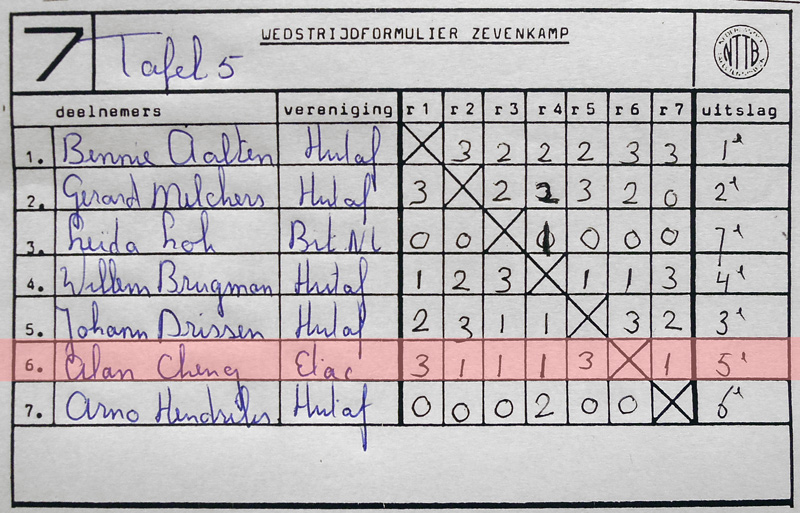 7 Tafel 5 WEDSTRIJDFORMULIER ZEVENKAMP NTTB
deelnemers vereniging r 1 r 2 r 3 r 4 r 5 r 6 r 7 uitslag
1. Bennie Aalten Hutaf X 3 2 2 2 3 3 1e
2. Gerard Melchers Hutaf 3 X 2 2 3 2 0 2e
3. Leida Loh Brt. Nl 0 0 X 0 0 0 7e
4. Willem Brugman Hutaf 1 2 3 X 1 1 3 4e
5. Johann Drissen Hutaf 2 3 1 1 X 3 2 3e
6. Alan Cheng Eliac 3 1 1 1 3 X 1 5e
7. Arno Hendriks Hutaf 0 0 0 2 0 0 X 6e